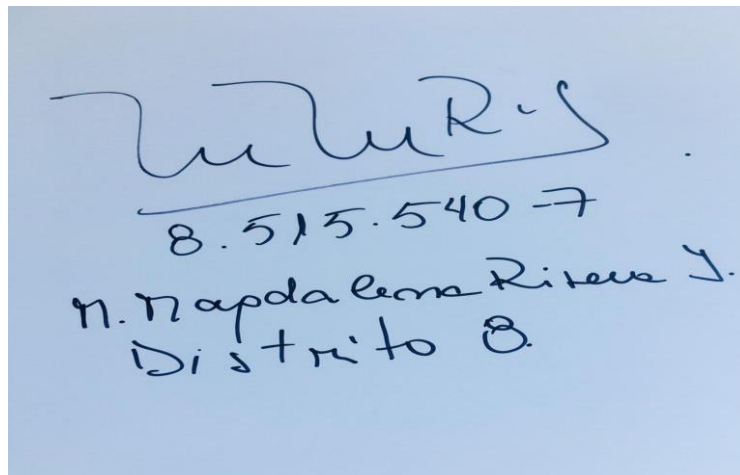 MMR.I
8.515.540-7
M. Magdalena Rivera I.
Distrito 8.